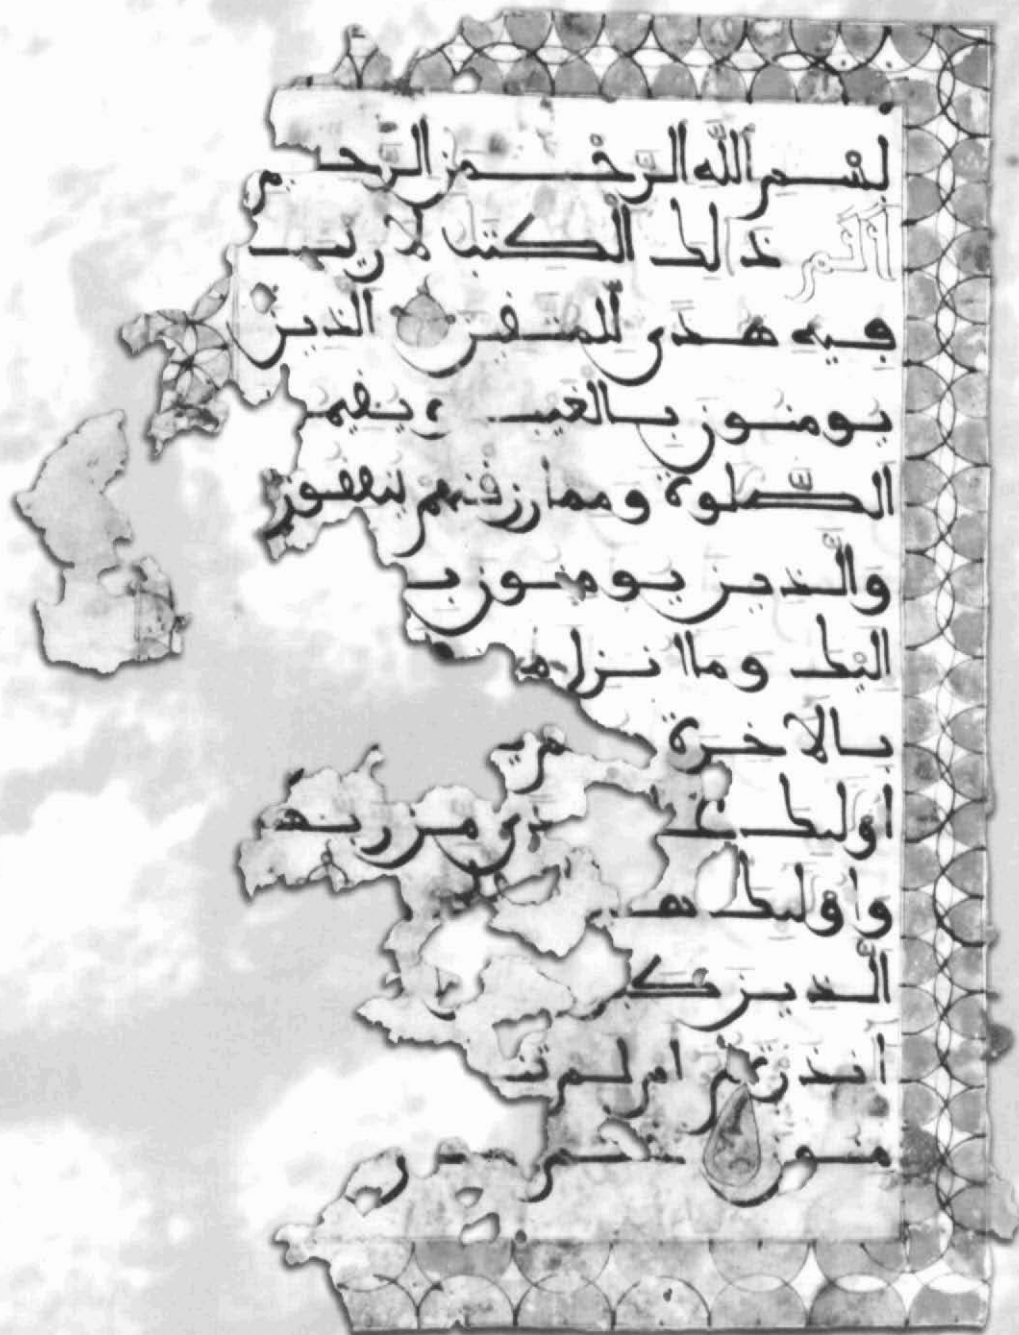 بسم الله الرحمن الرحيم
الم ذلك الكتب لا ريب
فيه هدى للمتقين الذين
يومنون بالغيب ويقيمو
الصلوة ومما رزقنهم ينفقون
والذين يومنون ب
اليك وما انزل م
بالاخرة
اوليك من ربهم
واوليك
الذين
انذرتهم ام لم